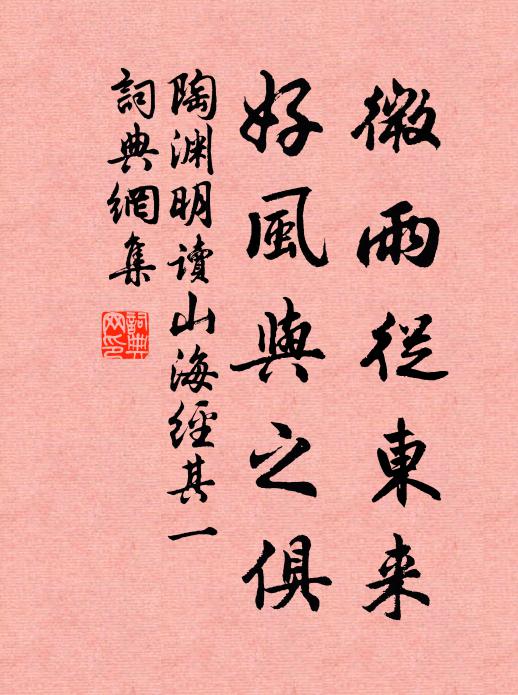 微雨從東来
好風與之俱
陶渊明讀山海經其一
詞典網集
詞典網印